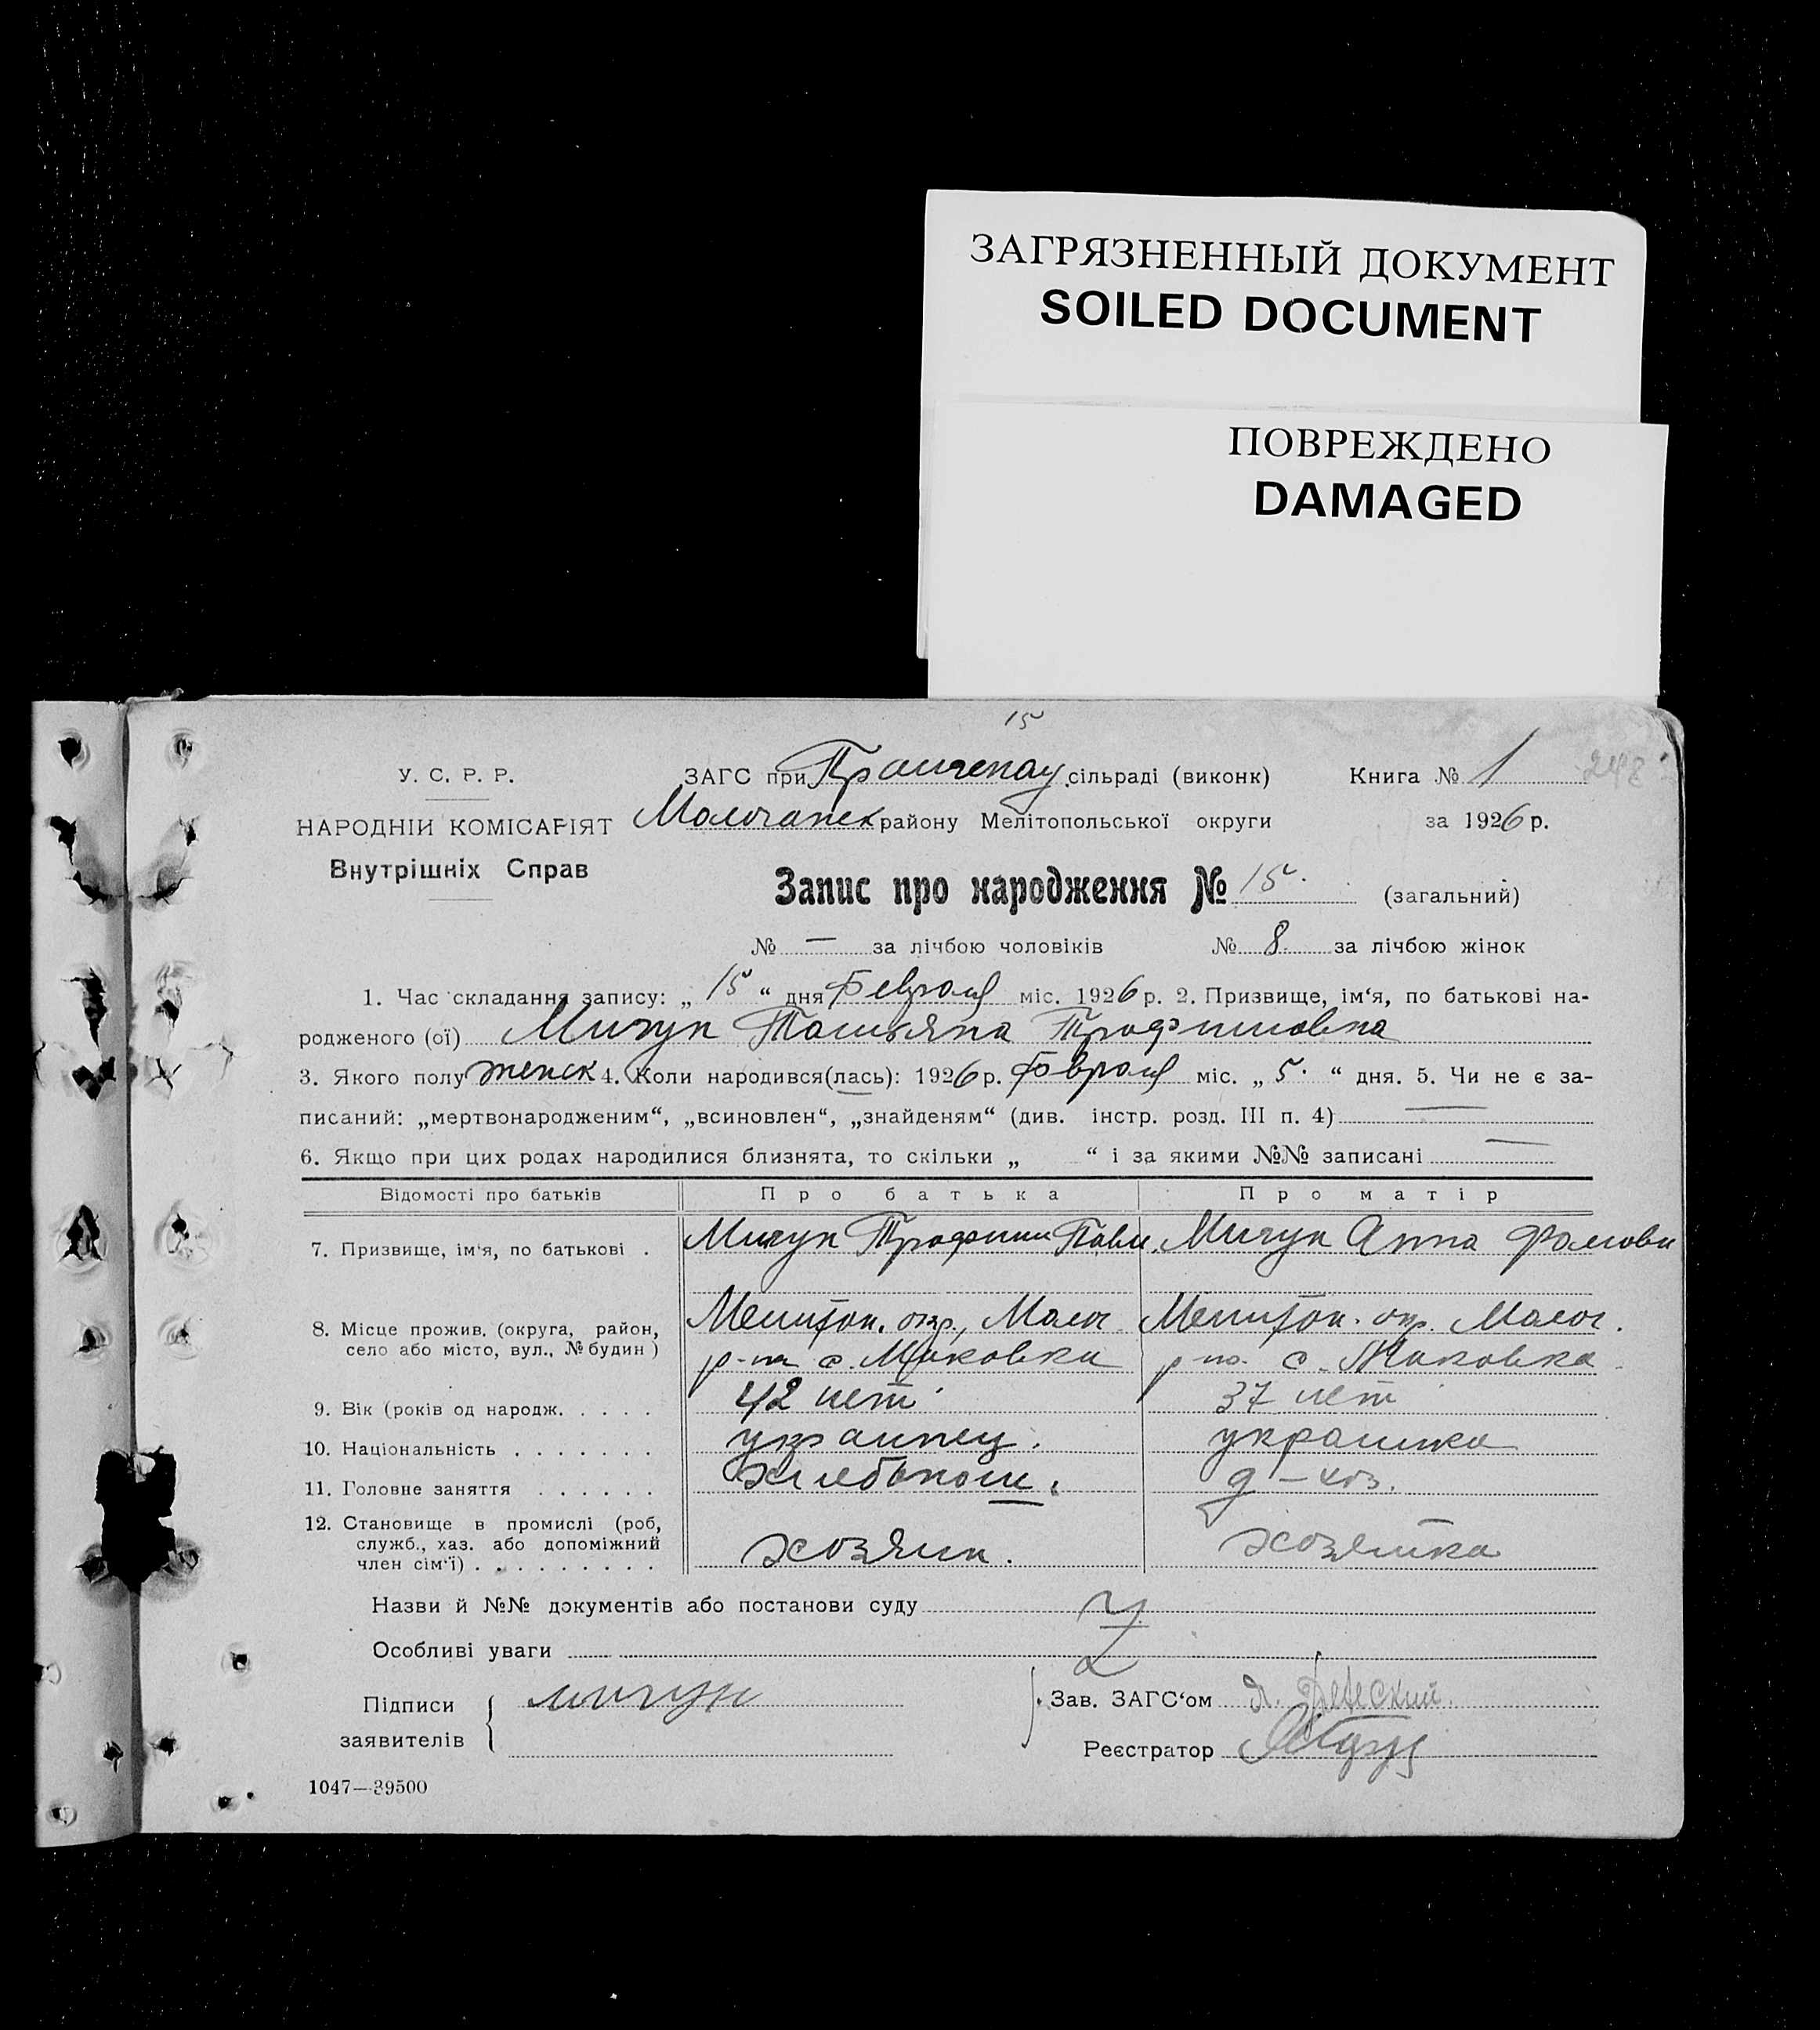 ЗАГРЯЗНЕННЫЙ ДОКУМЕНТ
SOILED DOCUMENT
ПОВРЕЖДЕНО
DAMAGED
15
У. С. Р. Р.
ЗАГС при сільраді (виконк)
Книга № 1
248
НАРОДНІЙ КОМІСАРІЯТ
Молочанск району Мелітопольської округи
за 1926 р.
Внутрішніх Справ
Запис про народження № 15. (загальний)
№ — за лічбою чоловіків № 8 за лічбою жінок
1. Час складання запису: „ 15 “ дня Февраля міс. 1926 р. 2. Призвище, ім‘я, по батькові на-
родженого (ої) Мичун Татьяна Трофимовна
3. Якого полу женск 4. Коли народився(лась): 1926 р. Февраля міс. „ 5. “ дня. 5. Чи не є за-
писаний: „мертвонародженим“, „всиновлен“, „знайденям“ (див. інстр. розд. III п. 4) —
6. Якщо при цих родах народилися близнята, то скільки „ “ і за якими №№ записані —
Відомості про батьків Про батька Про матір
7. Призвище, ім‘я, по батькові . Мичун Трофим Павл. Мичун Анна Фомовн
8. Місце прожив. (округа, район, Мелитоп. окр., Молоч. Мелитоп. окр. Молоч.
село або місто, вул., № будин ) р-на с. Маковка р-на с. Маковка
9. Вік (років од народж. . . . . 42 лет 37 лет
10. Національність . . . . . . . украинец. украинка
11. Головне заняття . . . . . . хлебопаш. д-хоз.
12. Становище в промислі (роб,
служб., хаз. або допоміжний
член сім‘ї) . . . . . . . . . хозяин. хозяйка
Назви й №№ документів або постанови суду
Особливі уваги
Підписи мичун
заявителів
Зав. ЗАГС‘ом
Реєстратор
1047—39500